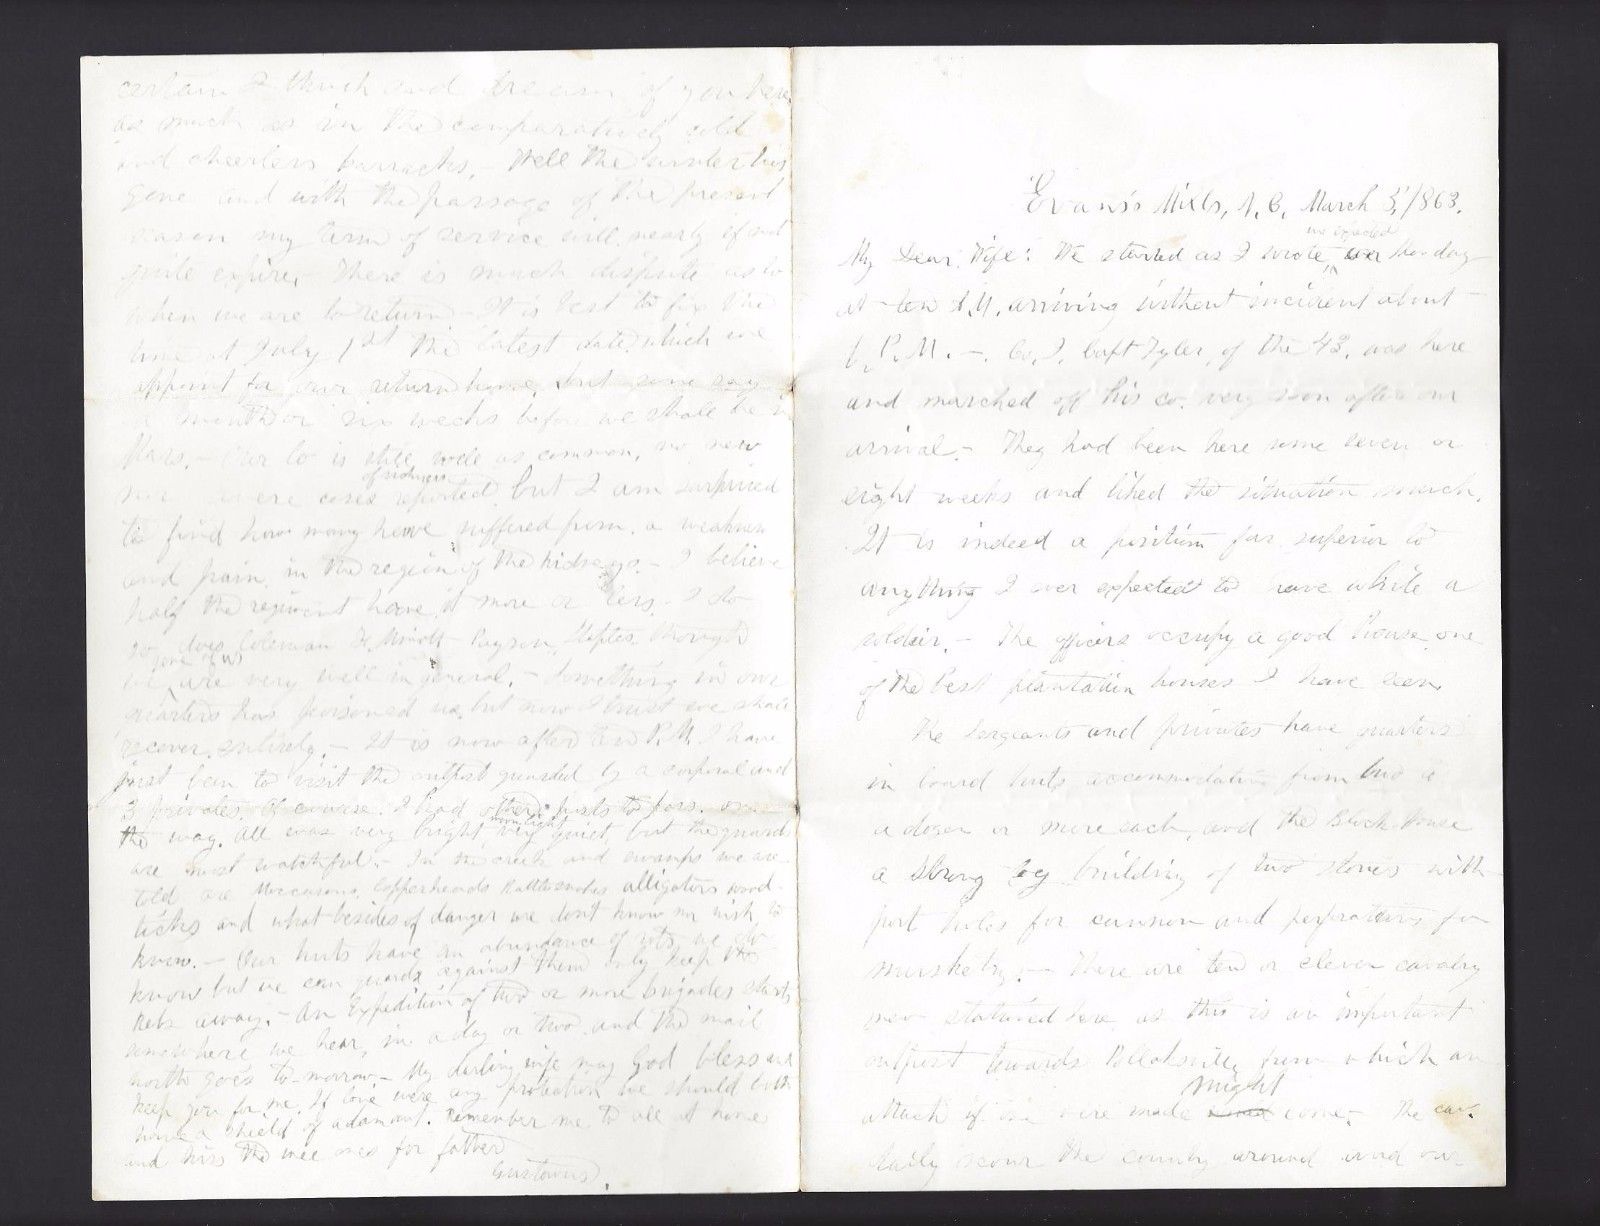 Evans's Mills, N.C. March 5, 1863.
we expected
My Dear Wife: We started as I wrote Monday
at ten A.M. arriving without incident about
P.M. — Co. I, Capt Tyler, of the 43, was here
and marched off his co. very soon after our
arrival. — They had been here some seven or
eight weeks and liked the situation much.
It is indeed a position far superior to
anything I ever expected to have while a
soldier. — The officers occupy a good house one
of the best plantation houses I have seen.
The Sergeants and privates have quarters
in board huts accommodating from two to
a dozen or more each, and the Block House
a strong log building of two stories with
port holes for cannon and perforations for
musketry. — There are ten or eleven cavalry
men stationed here as this is an important
outpost towards Pollaksville from which an
attack if one were made might come. — The cav.
daily scour the country around and our
certain I think and dream of you here
as much as in the comparatively cold
and cheerless barracks. — Well the winter has
gone and with the passage of the present
season my term of service will nearly if not
quite expire. There is much dispute as to
when we are to return — It is best to fix the
time at July 1st the latest date which we
appoint for our return home, but some say
a month or six weeks before we shall be in
Mass. — Our Co is still well as common, no new
severe cases of sickness reported but I am surprised
to find how many have suffered from a weakness
and pain in the region of the kidneys. — I believe
half the regiment have it more or less. I do
so does Coleman Payson, Staples, though
we are very well in general. — Something in our
quarters has poisoned us, but now I trust we shall
recover entirely. — It is now after ten P.M. I have
just been to visit the outpost guarded by a corporal and
3 privates. Of course I had other posts to pass on
the way. All was very bright moonlight, very quiet, but the guard
are most watchful. — In the creek and swamps we are
told are Moccasons, Copperheads Rattlesnakes alligators wood-
ticks and what besides of danger we don't know nor wish to
know. — Our huts have an abundance of rats we do
know but we can guard against them only keep the
Rebs away. — An Expedition of two or more brigades starts
somewhere we hear, in a day or two and the mail
north goes to-morrow. — My darling wife may God bless and
keep you for me. If love were any protection we should both
have a shield of adamant. Remember me to all at home
and kiss the wee ones for father
Gustavus.